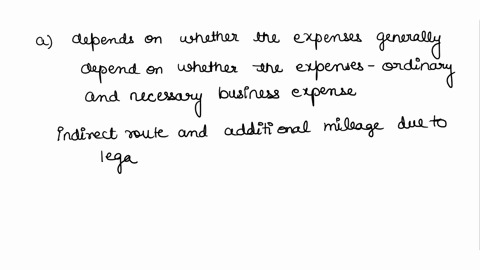 a) depends on whether the expenses generally
depend on whether the expenses - ordinary
and necessary business expense
indirect route and additional mileage due to
lega